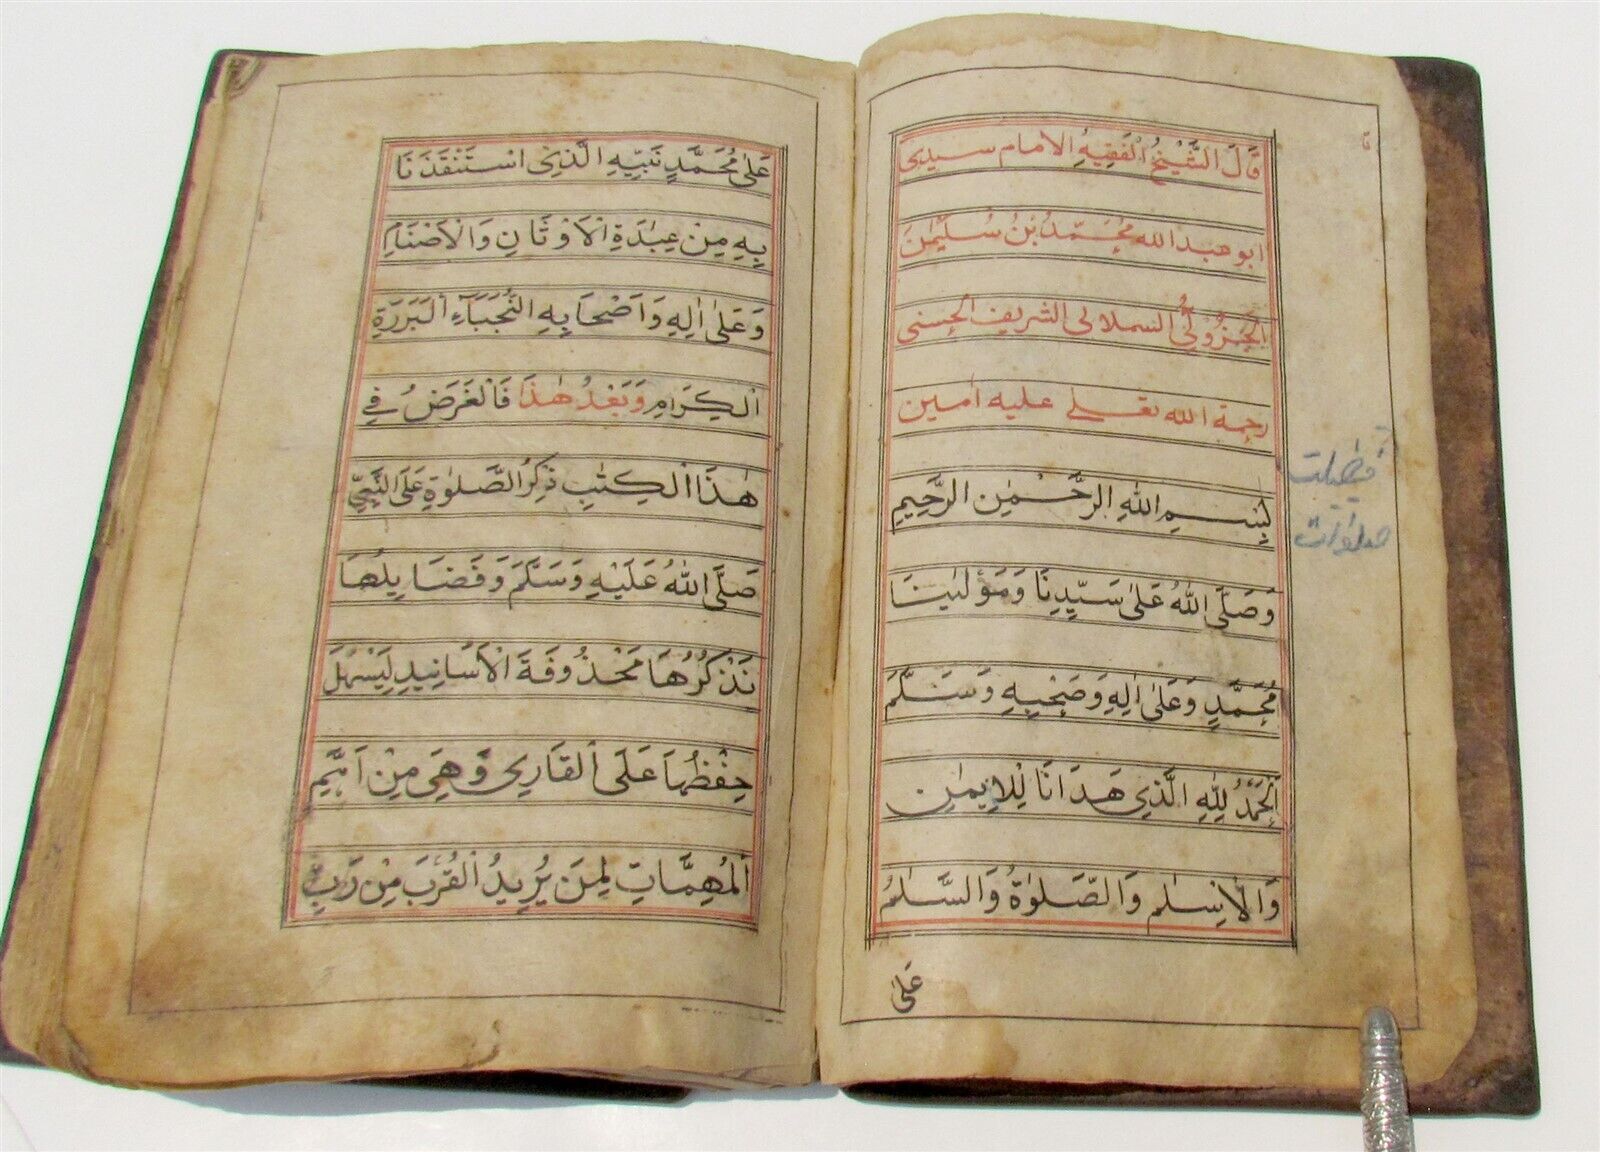 قَالَ الشَّيْخُ الْفَقِيهِ الامام سيدى
ابو عبد الله مُحَمَّدُ بْنُ سُلَيْمٰنَ
الجَزُولِىُّ السملالى الشريف الحسنى
رحمة الله تعلى عليه امين
بِسْمِ اللّٰهِ الرَّحْمٰنِ الرَّحِيمِ
وَصَلَّى اللّٰهُ عَلٰى سَيِّدِنَا وَمَوْلٰينَا
مُحَمَّدٍ وَعَلٰى اٰلِهِ وَصَحْبِهِ وَسَلَّمَ
اَلْحَمْدُ لِلّٰهِ الَّذِى هَدَانَا لِلْاِيمٰنِ
وَالْاِسْلٰمِ وَالصَّلٰوةُ وَالسَّلٰمُ
عَلٰى
فضيلت
صلوات
عَلٰى مُحَمَّدٍ نَبِيِّهِ الَّذِى اسْتَنْقَذَنَا
بِهِ مِنْ عِبَادَةِ الْاَوْثَانِ وَالْاَصْنَامِ
وَعَلٰى اٰلِهِ وَاَصْحَابِهِ النُّجَبَآءِ الْبَرَرَةِ
الْكِرَامِ وَبَعْدُ هٰذَا فَالْغَرَضُ فِى
هٰذَا الْكِتٰبِ ذِكْرُ الصَّلٰوةِ عَلَى النَّبِىِّ
صَلَّى اللّٰهُ عَلَيْهِ وَسَلَّمَ وَفَضَايِلُهَا
نَذْكُرُهَا مَحْذُوفَةَ الْاَسَانِيدِ لِيَسْهُلَ
حِفْظُهَا عَلَى الْقَارِى وَهِىَ مِنْ اَهَمِّ
الْمُهِمَّاتِ لِمَنْ يُرِيدُ الْقُرْبَ مِنْ رَبِّ